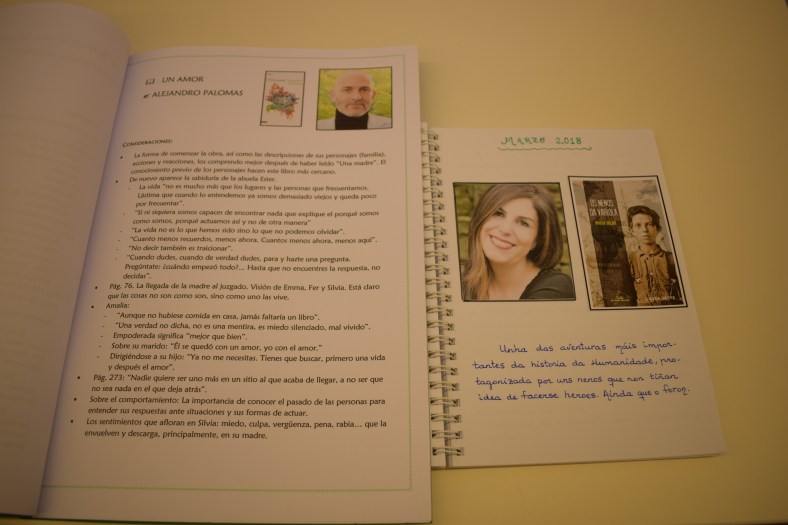 UN AMOR
ALEJANDRO PALOMAS
CONSIDERACIONES:
• La forma de comenzar la obra, así como las descripciones de sus personajes (familia),
acciones y reacciones, los comprendo mejor después de haber leído "Una madre". El
conocimiento previo de los personajes hacen este libro más cercano.
• De nuevo aparece la sabiduría de la abuela Ester.
- La vida "no es mucho más que los lugares y las personas que frecuentamos.
Lástima que cuando lo entendemos ya somos demasiado viejos y queda poco
por frecuentar".
- "Si ni siquiera somos capaces de encontrar nada que explique el porqué somos
como somos, porqué actuamos así y no de otra manera"
- "La vida no es lo que hemos sido sino lo que no podemos olvidar".
- "Cuanto menos recuerdos, menos ahora. Cuantos menos ahora, menos aquí".
- "No decir también es traicionar".
- "Cuando dudes, cuando de verdad dudes, para y hazte una pregunta.
Pregúntate: ¿cuándo empezó todo?... Hasta que no encuentres la respuesta, no
decidas".
• Pág. 76. La llegada de la madre al juzgado. Visión de Emma, Fer y Silvia. Está claro
que las cosas no son como son, sino como uno las vive.
• Amalia:
- "Aunque no hubiese comida en casa, jamás faltaría un libro".
- "Una verdad no dicha, no es una mentira, es miedo silenciado, mal vivido".
- Empoderada significa "mejor que bien".
- Sobre su marido: "Él se quedó con un amor, yo con el amor."
- Dirigiéndose a su hijo: "Ya no me necesitas. Tienes que buscar, primero una vida
y después el amor".
• Pág. 273: "Nadie quiere ser uno más en un sitio al que acaba de llegar, a no ser que
no sea nada en el que deja atrás".
• Sobre el comportamiento: La importancia de conocer el pasado de las personas para
entender sus respuestas ante situaciones y sus formas de actuar.
• Los sentimientos que afloran en Silvia: miedo, culpa, vergüenza, pena, rabia... que la
envuelven y descarga, principalmente, en su madre.
MARZO 2.018
OS NENOS
DA VARIOLA
Unha das aventuras máis impor-
tantes da historia da Humanidade, pro-
tagonizada por uns nenos que non tiñan
idea de facerse heroes. Aínda que o foron.